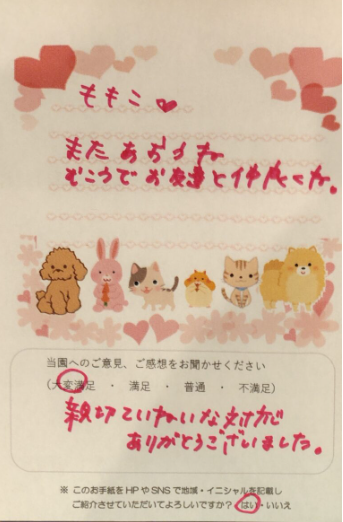 ももこ♥
またあおうね
むこうでお友達と仲良くね。
当園へのご意見、ご感想をお聞かせください
(大変満足 ・ 満足 ・ 普通 ・ 不満足)
親切ていねいな対応
ありがとうございました。
※ このお手紙をHPやSNSで地域・イニシャルを記載し
ご紹介させていただいてよろしいですか? はい・いいえ